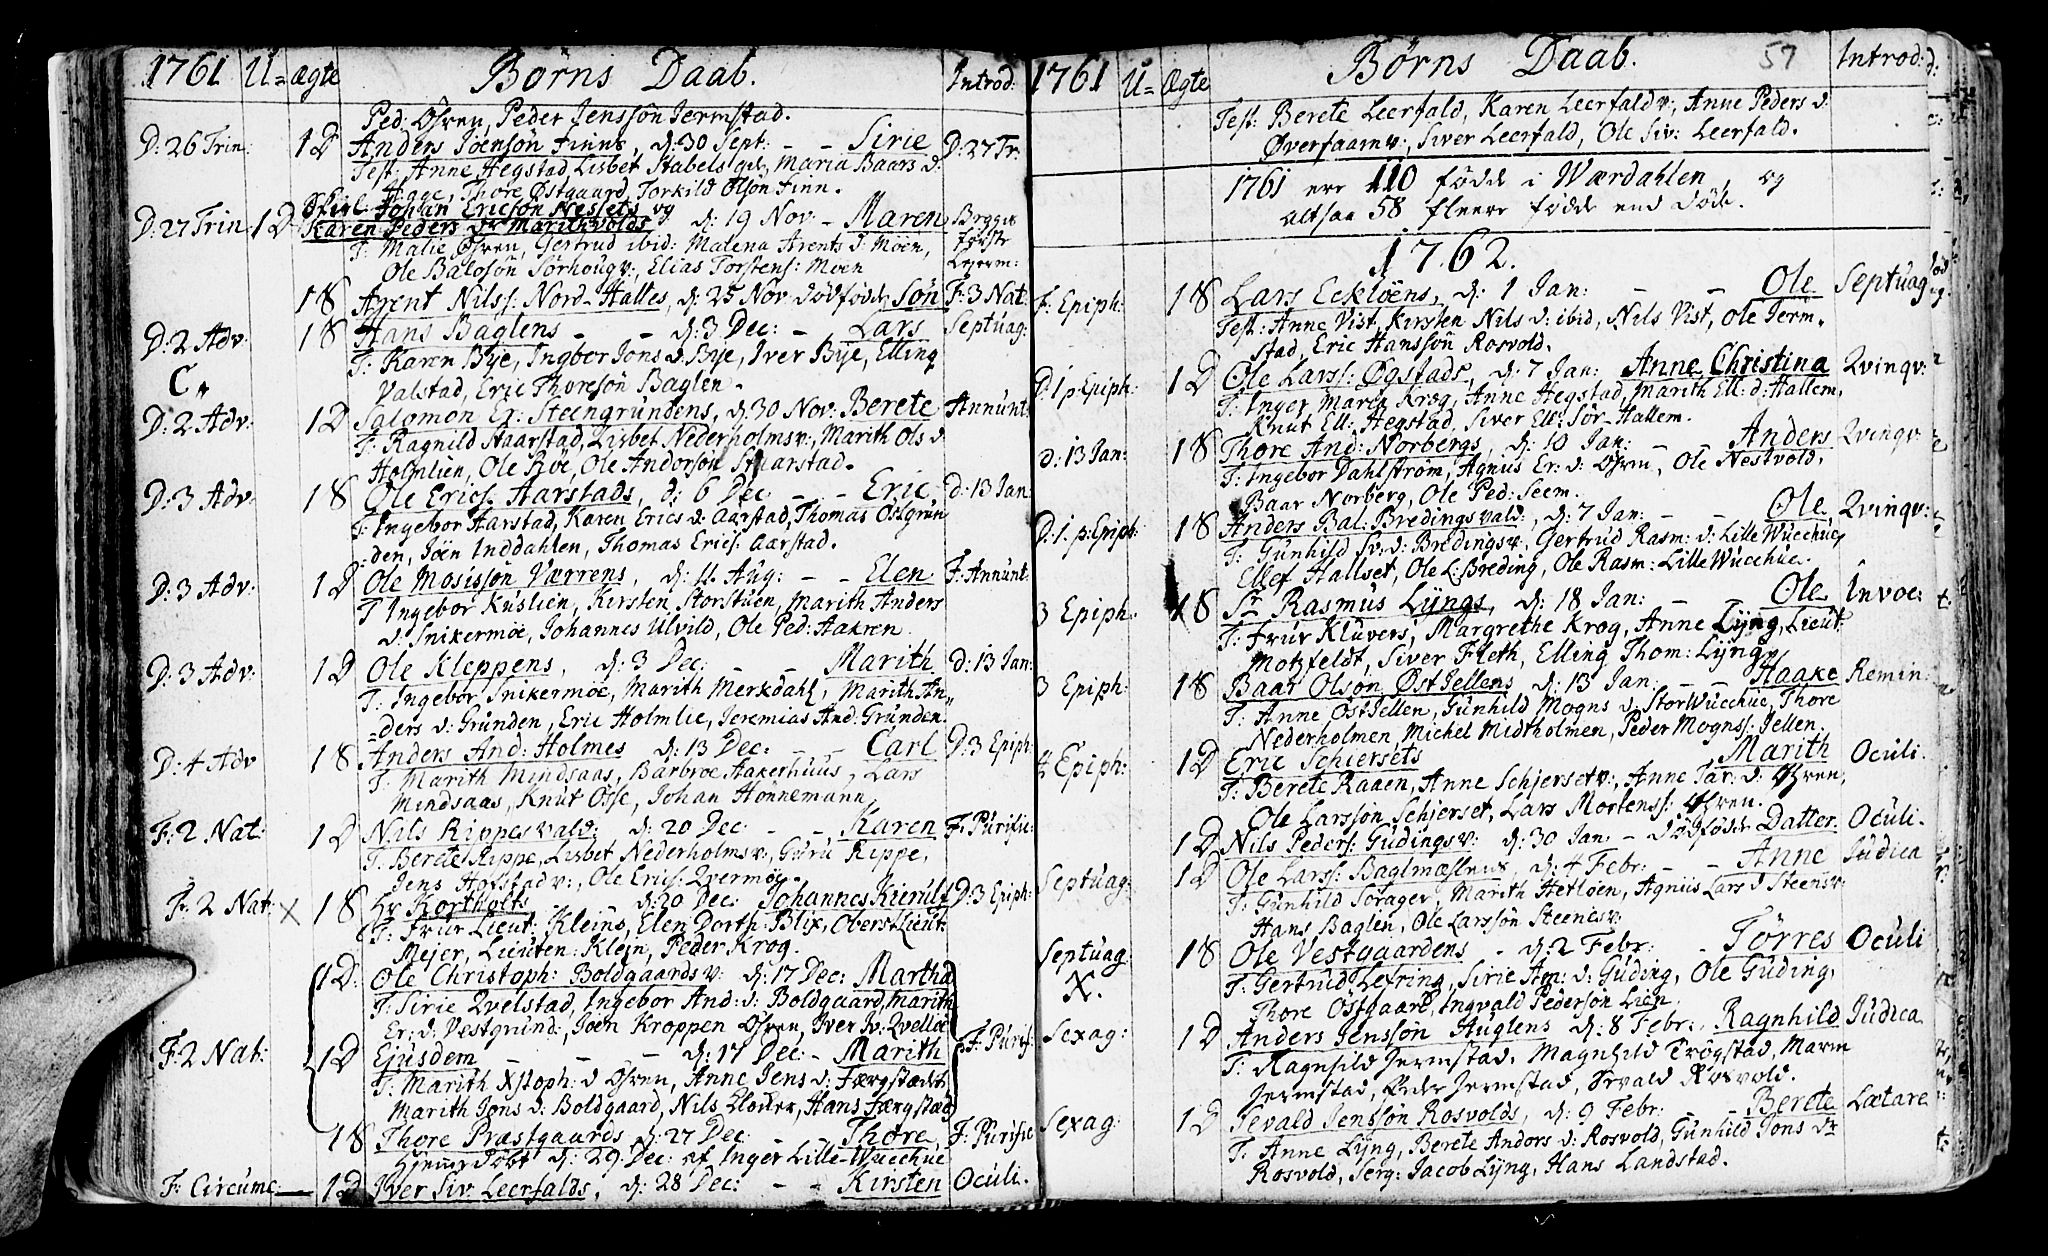 1761 U= Ægte Børns Daab. Introd:
Ped: Ösren, Peder Jenssön Jermstad.
D: 26 Trin: 1 D Anders Joensön Finns, d: 30 Sept: - - Sirie D: 27 Tr:
Test: Anne Hegstad, Lisbet Stabels Maria Baars d:
Hage, Thore Østgaard, Torkild Olson Finn.
D: 27 Trin: 1 D Johan Ericsön Nessets og
Karen Peders dr Marithvolds d: 19 Nov: - Maren Begges første Lejerm:
T: Malie Ösren, Gertrud ibid: Malena Arents d: Möen,
Ole Balosön Sörhougv:, Elias Torstens: Moen
1 S Arent Nilss: Nord-Halles, d: 25 Nov dödfödde Sön F: 3 Nat:
D: 2 Adv: 1 S Hans Baglens - - d: 3 Dec: - Lars Septuag:
T: Karen Bye, Ingbor Jons d: Bye, Iver Bye, Elling
C„ Valstad, Eric Thoresön Baglen.
D: 2 Adv: 1 D Salomon Er: Steengrundens, d: 30 Nov: Berete Annunt:
T: Ragnild Staarstad, Lisbet Nederholmsv:, Marith Ols d:
Holmlien, Ole Röe, Ole Andersön Staarstad.
D: 3 Adv: 1 S Ole Erics: Aarstads, d: 6 Dec: - - Eric D: 13 Jan:
T: Ingebor Aarstad, Karen Erics d: Aarstad, Thomas Östgrun
den, Jöen Inddahlen, Thomas Erics: Aarstad.
D: 3 Adv: 1 D Ole Mosissön Værrens, d: 11 Aug: - - Elen F: Annunt:
T Ingebor Kuslien, Kirsten Storstuen, Marith Anders
d: Snikermöe, Johannes Ulvild, Ole Ped: Aakren
D: 3 Adv: 1 D Ole Kleppens, d: 3 Dec: - - Marith D: 13 Jan:
T: Ingebor Snikermöe, Marith Merkdahl, Marith An=
=ders d: Grunden, Eric Holmlie, Jeremias And: Grunden.
D: 4 Adv 1 S Anders And: Holmes d: 13 Dec: - - Carl D: 3 Epiph:
T: Marith Mindsaas, Barbroe Aakerhuus, Lars
Mindsaas, Knut Osse, Johan Honnemann.
F: 2 Nat: 1 D Nils Rippesvald: d: 20 Dec: - - Karen F: Purific:
T: Berete Rippe, Lisbet Nederholmsv:, Guru Rippe,
Jens Hofstadv:, Ole Erics: Qvermoe.
F: 2 Nat: X 1 S Hr Kortholts - d: 20 Dec: Johannes Kierulf D: 3 Epiph:
T: Frur Lieut: Kleins, Elen Dorth: Blix, Oberst Lieut:
Mejer, Lieuten: Klein, Peder Krog.
1 D: Ole Christoph: Boldgaardsv: d: 17 Dec: Martha
T: Sirie Qvelstad, Ingebor And: d: Boldgaard, Marith
Er: d: Vestgrund:, Jöen Kroppen Ösren, Iver Iv: Qvelloe
F: 2 Nat: 1 D Ejusdem - - - d: 17 Dec: - Marith F: Purif:
T: Marith Xstoph: d Ösren, Anne Jens d: Færgstadt,
Marith Jons d: Boldgaard, Nils Elouer, Hans Færgstad
1 S Thore Præstgaards d: 27 Dec: - Thore F: Purific
hjemme döbt d: 29 Dec: af Inger Lille-Wucchue
F: Circumc: 1 D Iver Siv: Leerfalds, d: 28 Dec: - - Kirsten Oculi.
1761 U= Ægte Børns Daab. 57 Introd:
Test: Berete Leerfald, Karen Leerfaldv:, Anne Peders d:
Øverfaarnv:, Siver Leerfald, Ole Siv: Leerfald.
1761 ere 110 födde i Wærdahlen, og
altsaa 58 fleere födde end döde.
1762.
F: Epiph: 1 S Lars Ecklöens, d: 1 Jan: - - Ole Septuag
Test: Anne Vist, Kirsten Nils d: ibid, Nils Vist, Ole Jerm=
stad, Eric Hanssön Rosvold.
D: 1 p Epiph: 1 D Ole Larss: Øgstads, d: 7 Jan: Anne Christina Qvinqv:
T: Inger Maria Krog, Anne Hegstad, Marith Ell: d: Hallem,
Knut Ell: Hegstad, Siver Ell: Sör-Hallem.
d: 13 Jan: 1 S Thore And: Norbergs, d: 10 Jan: - - Anders Qvinqv:
T: Ingebor Dahlström, Agnus Er: d: Ösren, Ole Nestvold,
Baar Norberg, Ole Ped: Seem.
D: 1. p: Epiph: 1 S Anders Bal: Bredingsvald:, d: 7 Jan: - - Ole Qvinqv:
T: Gunhild Sv: d: Bredingsv:, Gertrud Rasm: d: Lille Wucchue,
Ellef Hallset, Ole L: Breding, Ole Rasm: Lille Wucchue.
3 Epiph: 1 S Sr Rasmus Lÿngs, d: 18 Jan: - - Ole Invoc:
T: Frur Klüvers, Margrethe Krog, Anne Lÿng, Lieut:
Motzfeldt, Siver Fleth, Elling Thom: Lÿng.
3 Epiph: 1 S Baar Olsön Øst Jellens d: 13 Jan: - - Haake Remin:
T: Anne Ost Jellen, Gunhild Mogns d: Stor Wucchue, Thore
Nederholmen, Michel Midtholmen, Peder Mognss: Jellen.
4 Epiph: 1 D Eric Schjersets Marith Oculi.
T: Berete Raaen, Anne Schjersetv:, Anne Tar: d: Ösren,
Ole Larssön Schjerset, Lars Mortenss: Ösren.
1 D Nils Peders: Gudingsv: d: 30 Jan: - dödfödde Datter: Oculi.
Septuag: 1 D Ole Larss: Baglmaslens, d: 4 Febr: - - Anne Judica
T: Gunhild Sorager, Marith Hetloen, Agnus Lars d Steensv:
Hans Baglen, Ole Larssön Steenesv:
Septuag: 1 S Ole Vestgaardens - d: 2 Febr: - Törres Oculi
X. T: Gertrud Lefring, Sirie Am: d: Guding, Ole Guding,
Thore Ostgaard, Ingvald Pedersön Lien.
Sexag: 1 D Anders Jenssön Kuglens d: 8 Febr: Ragnhild Judica
T: Ragnhild Jermstad, Magnhild Trögstad, Maren
Jermstad, Peder Jermstad, Sevald Rosvold.
Sexag: 1 D Sevald Jenssön Rosvolds, d: 9 Febr: Berete Lætare
T: Anne Lÿng, Berete Anders d: Rosvold, Gunhild Jons dr
Rosvold, Serg: Jacob Lÿng, Hans Landstad.